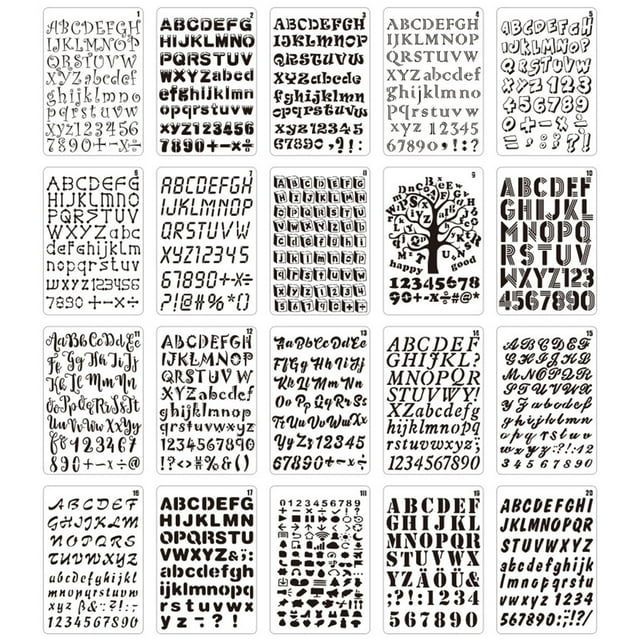 1
ABCDEFG
IJKLMNOP
QRSTUVW
XYZabcdef
ghijklmno
pqrstuvw
xyz123456
7890+-×÷
2
ABCDEFG
HIJKLMNO
PQRSTUV
WXYZabcd
efghijklmn
opqrstuvw
xyz123456
7890+-×÷
3
ABCDEFGH
IJKLMNOP
QRSTUVW
XYZabcde
fghijklmn
opqrstuvw
xyz12345
67890,?!:
4
ABCDEFGH
IJKLMNOP
QRSTUVW
XYZabcdef
ghijklmno
pqrstuvw
xyz12345
67890,!:?
5
ABCDEFGH
IJKLMNOP
QRSTUVW
XYZ123
456789
0+-×÷
=,:;?!
6
ABCDEFG
HIJKLMNO
PQRSTUV
WXYZabc
defghijklm
nopqrstuv
wxyz123456
7890+-×÷
7
ABCDEFGH
IJKLMNOP
QRSTUV W
XYZ12345
67890+-×÷
?!@#%*()
9
happy good
12345678
90+-×÷#@*
10
ABCDEF
GHIJKL
MNOPQ
RSTUV
WXYZ123
4567890
11
AaBbCcDdEe
Ff Gg Hh Ii Jj
Kk Ll Mm Nn
OoPpQqRrSsTt
UuVvWwXxYy
890+-×÷@
12
ABCDEFGH
IJKLMNOP
QRSTUVW
XYZabcdef
ghijklmnop
qrstuvwxyz
1234567890
!?<>%&()
13
AaBbCcDdEe
FfGg Hh IiJj
KkLl Mm Nn
Oo Pp QqRrSs
Tt Uu Vv Ww Xx
YyZz12345
67890+-×÷
14
ABCDEF
GHIJKL?
MNOPQR
STUVWY!
XYZabcdef
ghijklmnop
rstuvwxyz;
1234567890
15
ABCDEF
GHIJKL
MNOPQR
STUVWX
YZabcdef
ghijklmn
opqrstuv
wxyz:?!.12
34567890
16
ABCDEF
GHIJKLM
NOPQRS
TUVWXYZ
abcdefghijkl
mnopqrstuvw
xyz ß&:?!;-
1234567890
17
ABCDEFG
HIJKLMN
OPQRSTU
VWXYZ&;:
abcdefgh
ijklmnop
qrstuvwx
yz.?!1234
567890
18
0123456789
19
ABCDEF
GHIJKL
MNOPQ
RSTUVWX
YZÄÖÜ&
;?!:1234
567890
20
ABCDEFGHI
JKLMNOPQR
STUVWXYZ
abcdefghijk
lmnopqrstuv
wxyz12345
67890;:?!/